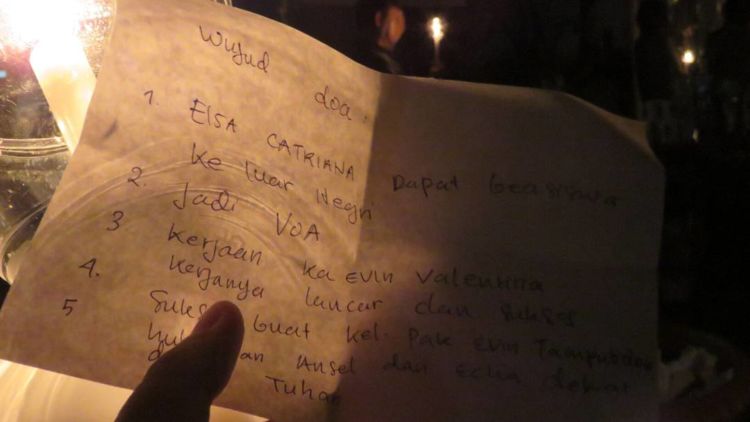 Wujud doa :
1. ElSA CATRIANA Dapat beasiswa
Ke luar Negri
2. Jadi VOA
3 Kerjaan ka EVIn Valentina
4. Kerjanya lancar dan sukses
5 Sukses buat kel. Pak Evin
Ansel dan Echa dekat
Tuhan